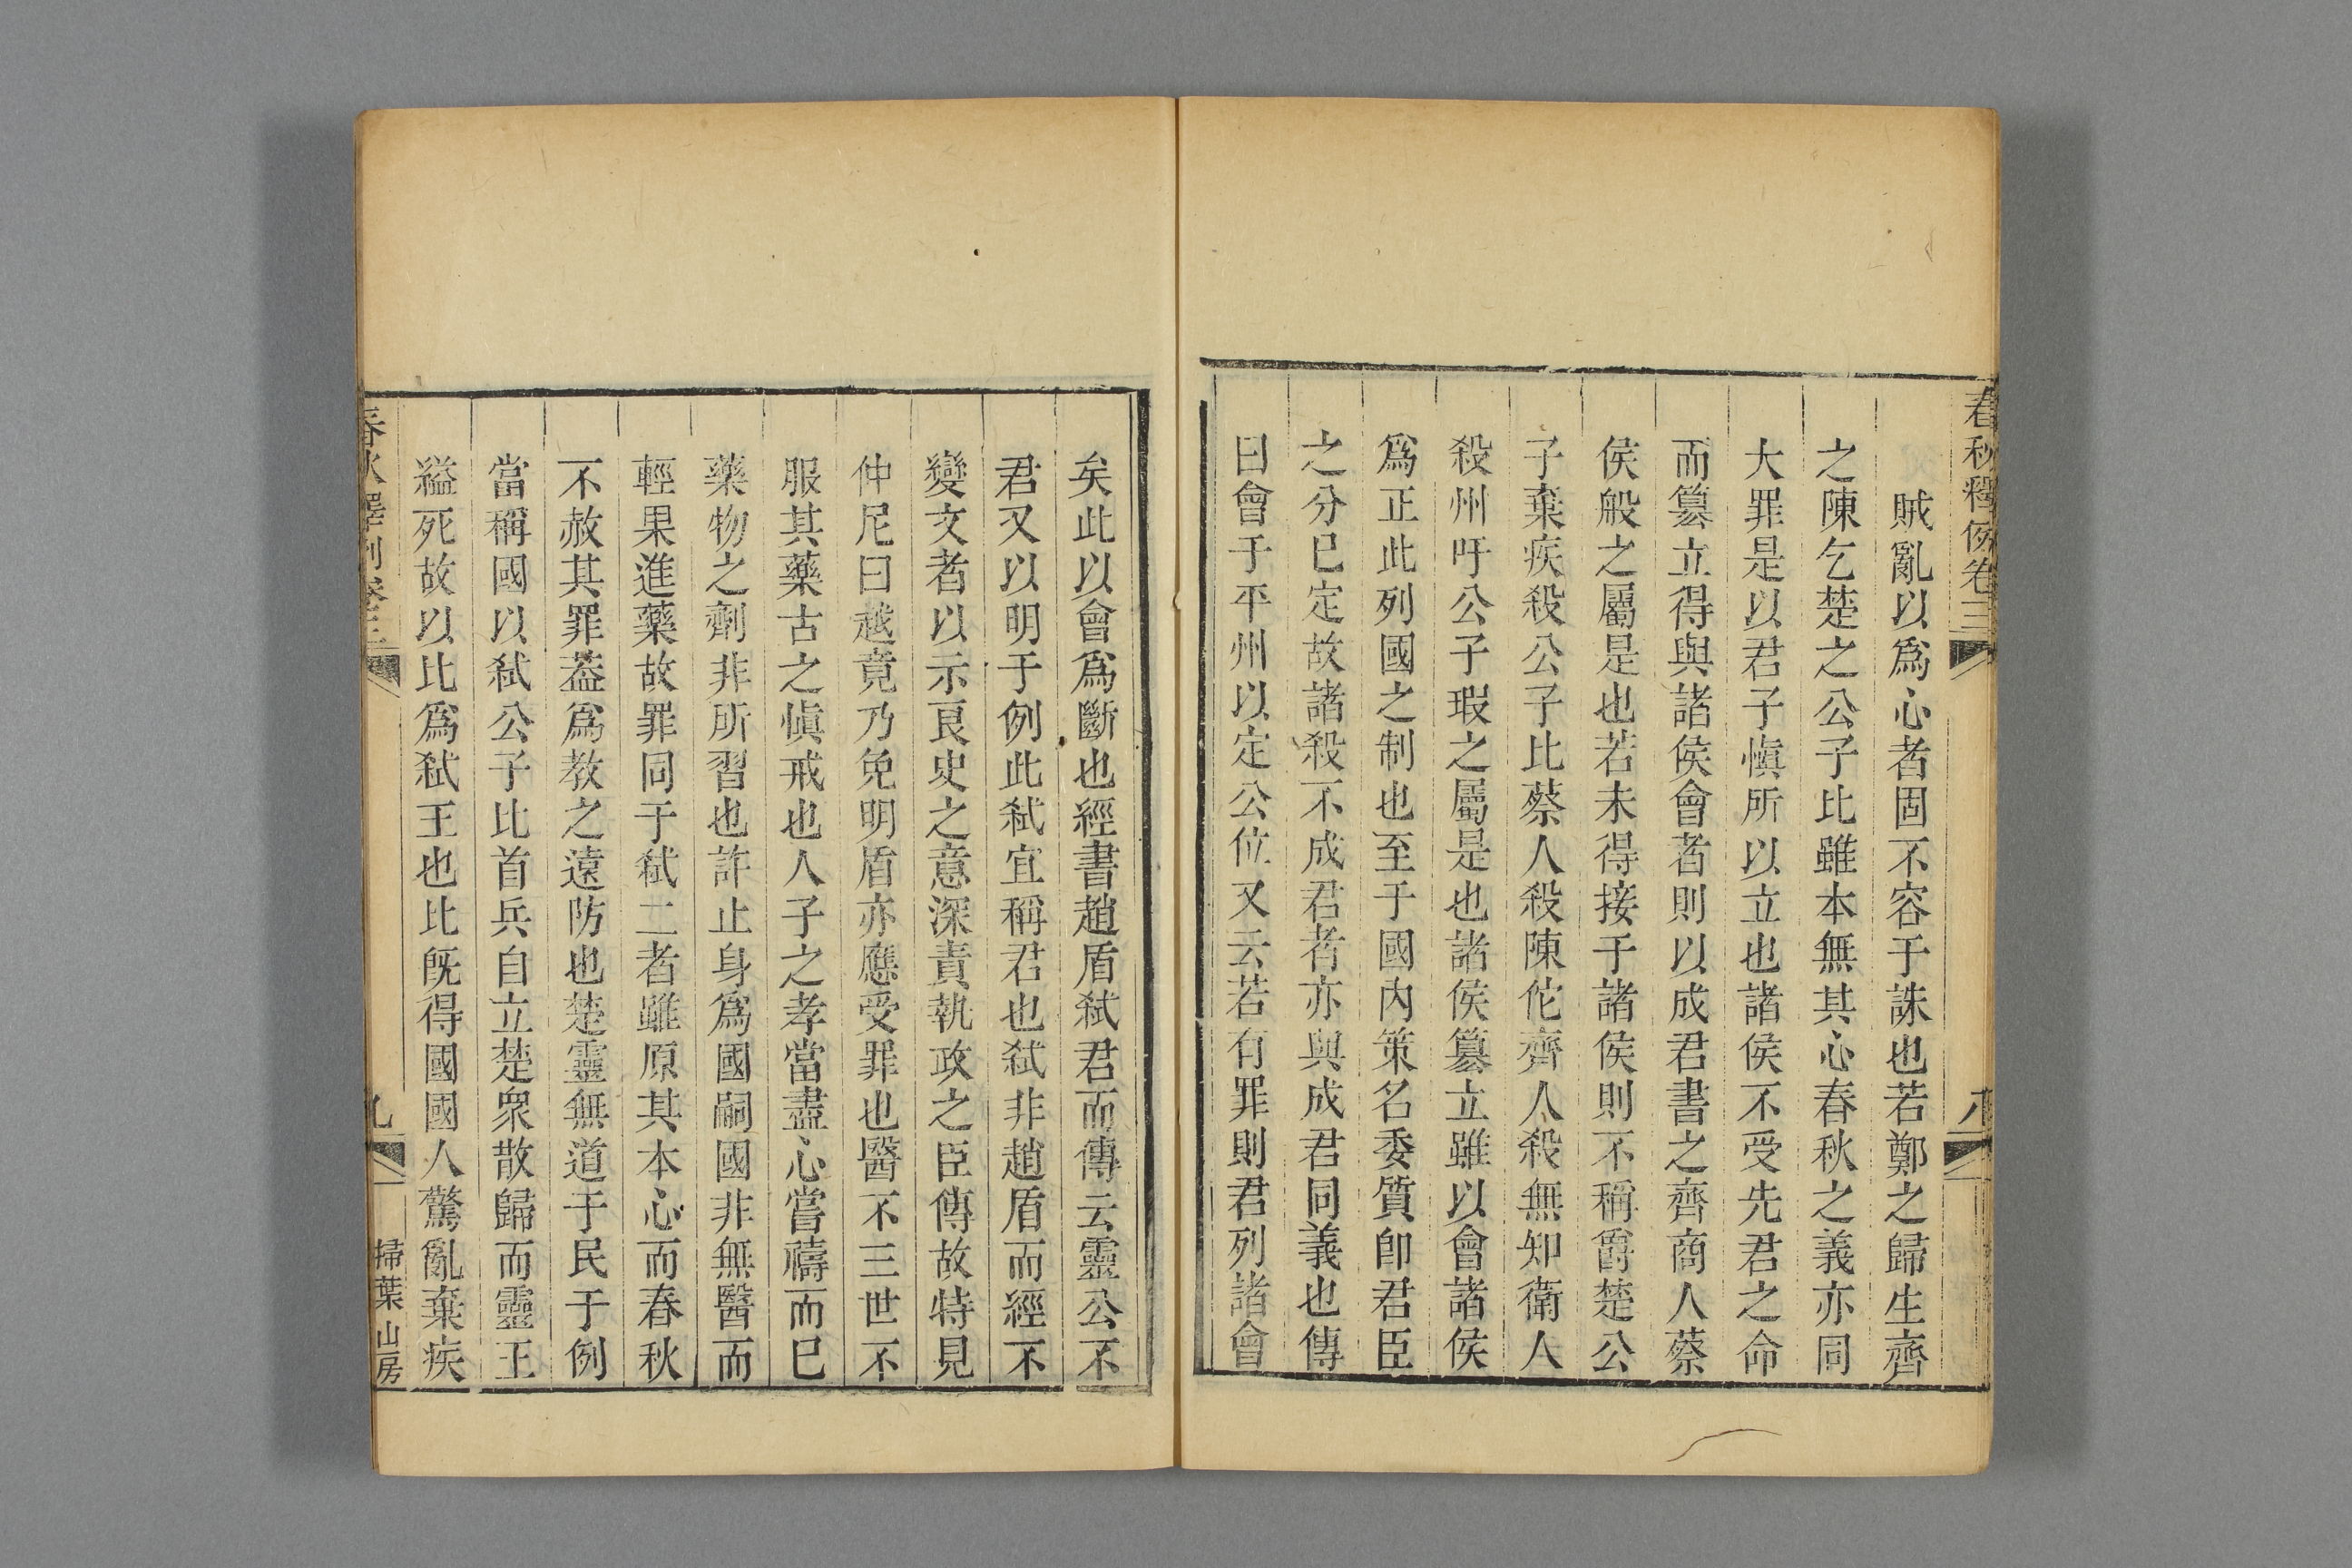 春秋釋例卷三
八
賊亂以爲心者固不容于誅也若鄭之歸生齊
之陳乞楚之公子比雖本無其心春秋之義亦同
大罪是以君子愼所以立也諸侯不受先君之命
而簒立得與諸侯會者則以成君書之齊商人蔡
侯般之屬是也若未得接于諸侯則不稱爵楚公
子棄疾殺公子比蔡人殺陳佗齊人殺無知衛人
殺州吁公子瑕之屬是也諸侯簒立雖以會諸侯
爲正此列國之制也至于國內策名委質卽君臣
之分已定故諸殺不成君者亦與成君同義也傳
曰會于平州以定公位又云若有罪則君列諸會
矣此以會爲斷也經書趙盾弑君而傳云靈公不
君又以明于例此弑宜稱君也弑非趙盾而經不
變文者以示良史之意深責執政之臣傳故特見
仲尼曰越竟乃免明盾亦應受罪也醫不三世不
服其藥古之愼戒也人子之孝當盡心嘗禱而已
藥物之劑非所習也許止身爲國嗣國非無醫而
輕果進藥故罪同于弑二者雖原其本心而春秋
不赦其罪葢爲教之遠防也楚靈無道于民于例
當稱國以弑公子比首兵自立楚衆散歸而靈王
縊死故以比爲弑王也比旣得國國人驚亂棄疾
春秋釋例卷三
九
掃葉山房